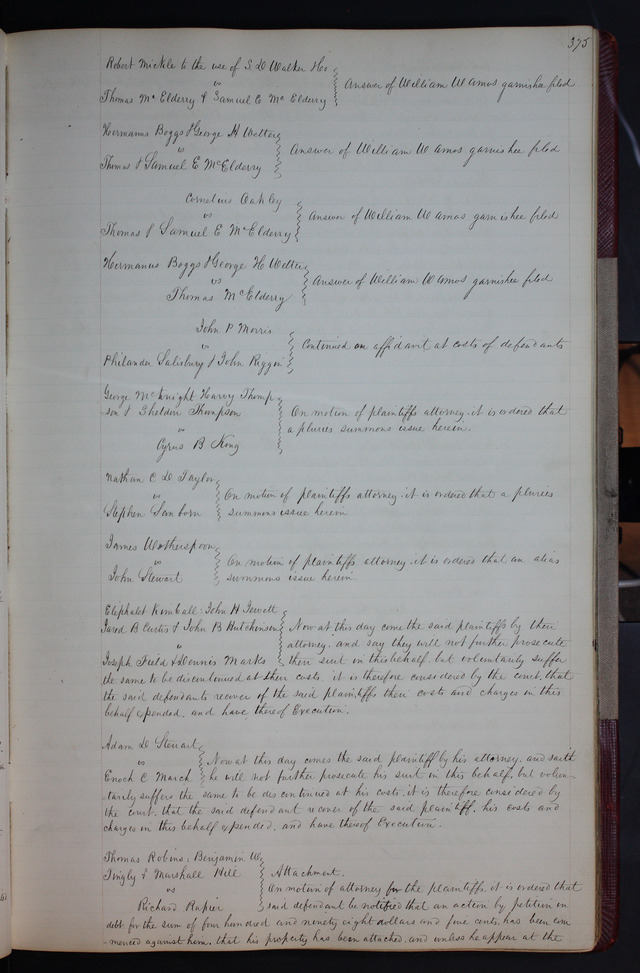 375
Robert Mickle to the use of S. D Walker &co
vs
Thomas Mc Elderry & Samuel E Mc Elderry
Answer of William W Amos garnishee filed
Hermanus Boggs & George H Wetter
vs
Thomas & Samuel E McElderry
Answer of William W Amos garnishee filed
Cornelius Oakley
vs
Thomas & Samuel E McElderry
Answer of William W Amos garnishee filed
Hermanus Boggs & George H Wetter
vs
Thomas McElderry
Answer of William W Amos garnishee filed
John P Morris
vs
Philander Salisbury & John Riggin
Continued on affidavit at costs of defendants
George McKnight Harvy Thomp
son & Sheldon Thompson
vs
Cyrus B King
On motion of plaintiffs attorney. it is ordered that
a pluries summons issue herein.
Nathan C D Taylor
vs
Stephen Sanborn
On motion of plaintiffs attorney. it is ordered that a pluries
summons issue herein
James Wotherspoon
vs
John Stewart
On motion of plaintiffs attorney. it is ordered that an alias
summons issue herein
Eliphalet Kimball. John H Jewett
Jared B Curtis & John B Hutchinson
vs
Joseph Field & Dennis Marks
Now at this day come the said plaintiffs by their
attorney. and say they will not further prosecute
their suit in this behalf. but voluntarily suffer
the same to be discontinued at their costs. it is therefore considered by the court. that
the said defendants recover of the said plaintiffs their costs and charges in this
behalf expended. and have thereof Execution.
Adam D Steuart
vs
Enoch C March
Now at this day comes the said plaintiff by his attorney. and saith
he will not further prosecute his suit in this behalf. but volun-
-tarily suffers the same to be discontinued at his costs. it is therefore considered by
the court. that the said defendant recover of the said plaintiff. his costs and
charges in this behalf expended. and have thereof Execution.
Thomas Robins. Benjamin W
Tingly & Marshall Hill
vs
Richard Rapier
Attachment.
On motion of attorney for the plaintiffs. it is ordered that
said defendant be notified that an action by petition in
debt for the sum of four hundred and ninety eight dollars and five cents. has been com
-menced against him. that his property has been attached. and unless he appear at the